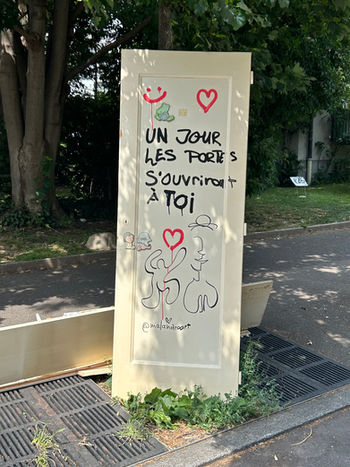 UN JOUR
LES PORTES
S'OUVRIRONT
À TOI